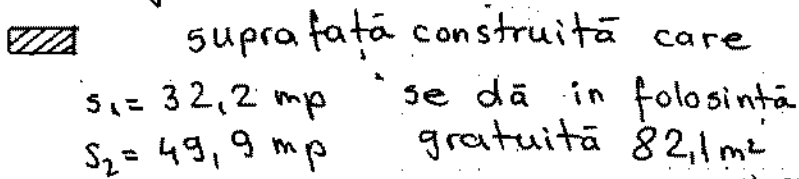 suprafaţă construită care
s₁= 32,2 mp se dă in folosinţă
S₂= 49,9 mp gratuită 82,1 m²